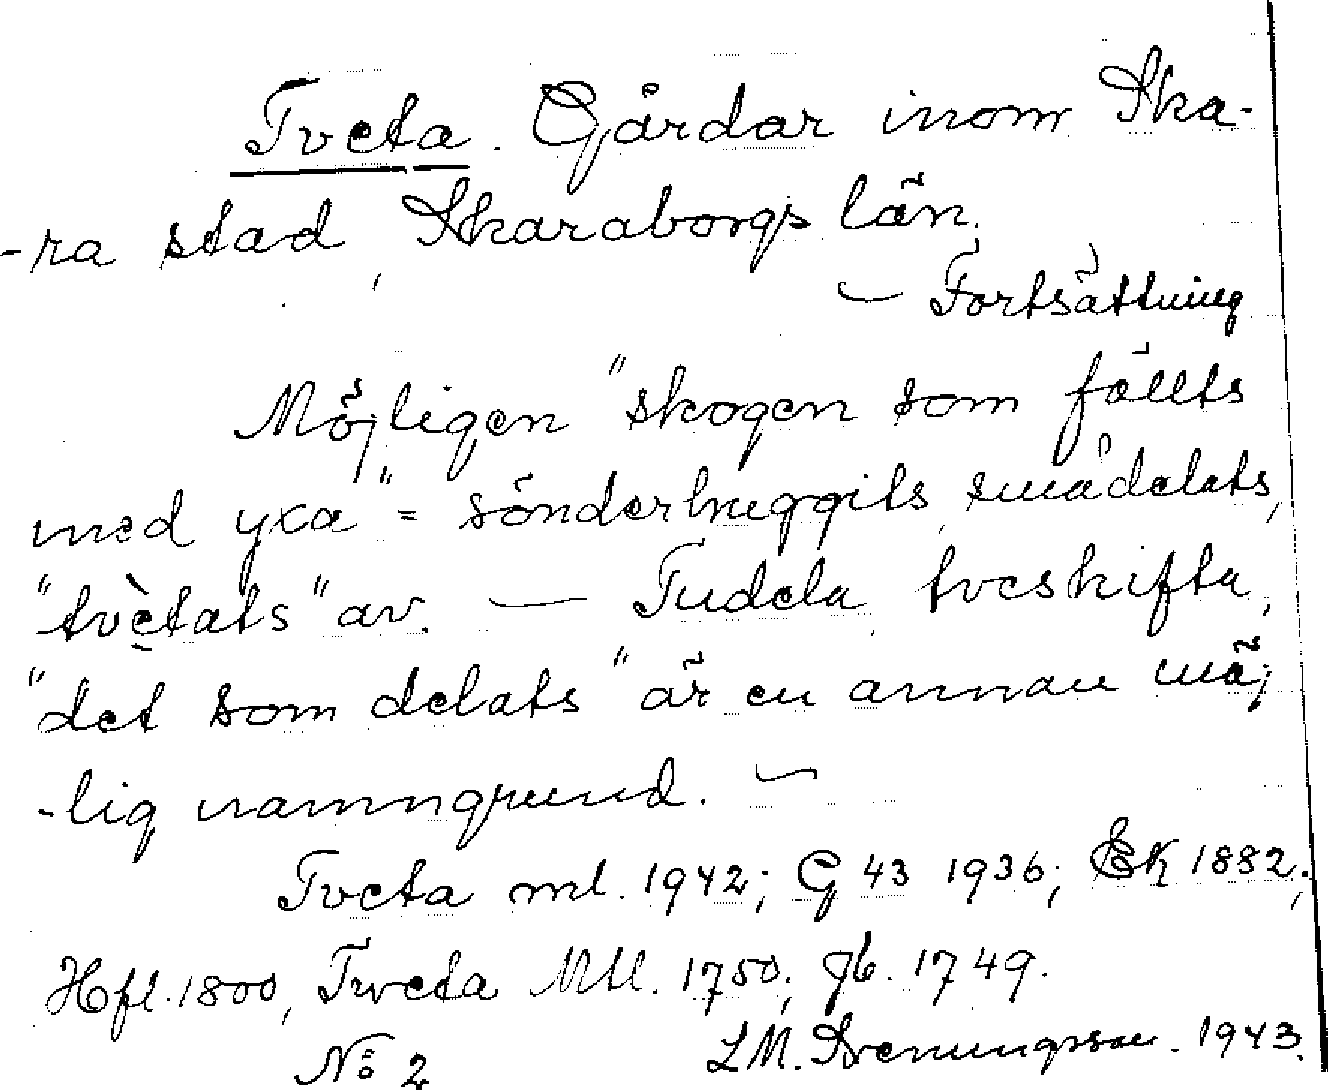 Tveta. Gårdar inom Ska-
-ra stad, Skaraborgs län.
— Fortsättning
Möjligen "skogen som fällts
med yxa" = sönderhuggits, smådelats,
"tvètats" av. — Tudela, tveskifta,
"det som delats" är en annan möj
-lig namngrund. —
Tveta ml. 1942; G 43 1936; EK 1882;
Hfl. 1800, Tweta Mtl. 1750; Jb. 1749.
No 2 L.M. Svenungsson. 1943.